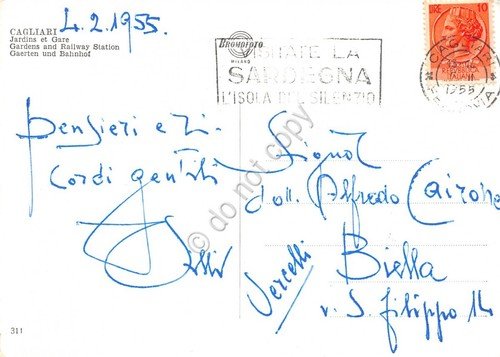 4.2.1955.
CAGLIARI
Jardins et Gare
Gardens and Railway Station
Gaerten und Bahnhof
BROMOFOTO
MILANO
VISITATE LA
SARDEGNA
L'ISOLA DEL SILENZIO
LIRE 10
CAGLIARI
1955
REPUBBLICA
ITALIANA
Pensieri e ri-
cordi gentili
Signor
dott. Alfredo Cairone
Biella
v. S. filippo 14
Vercelli
do not copy
311